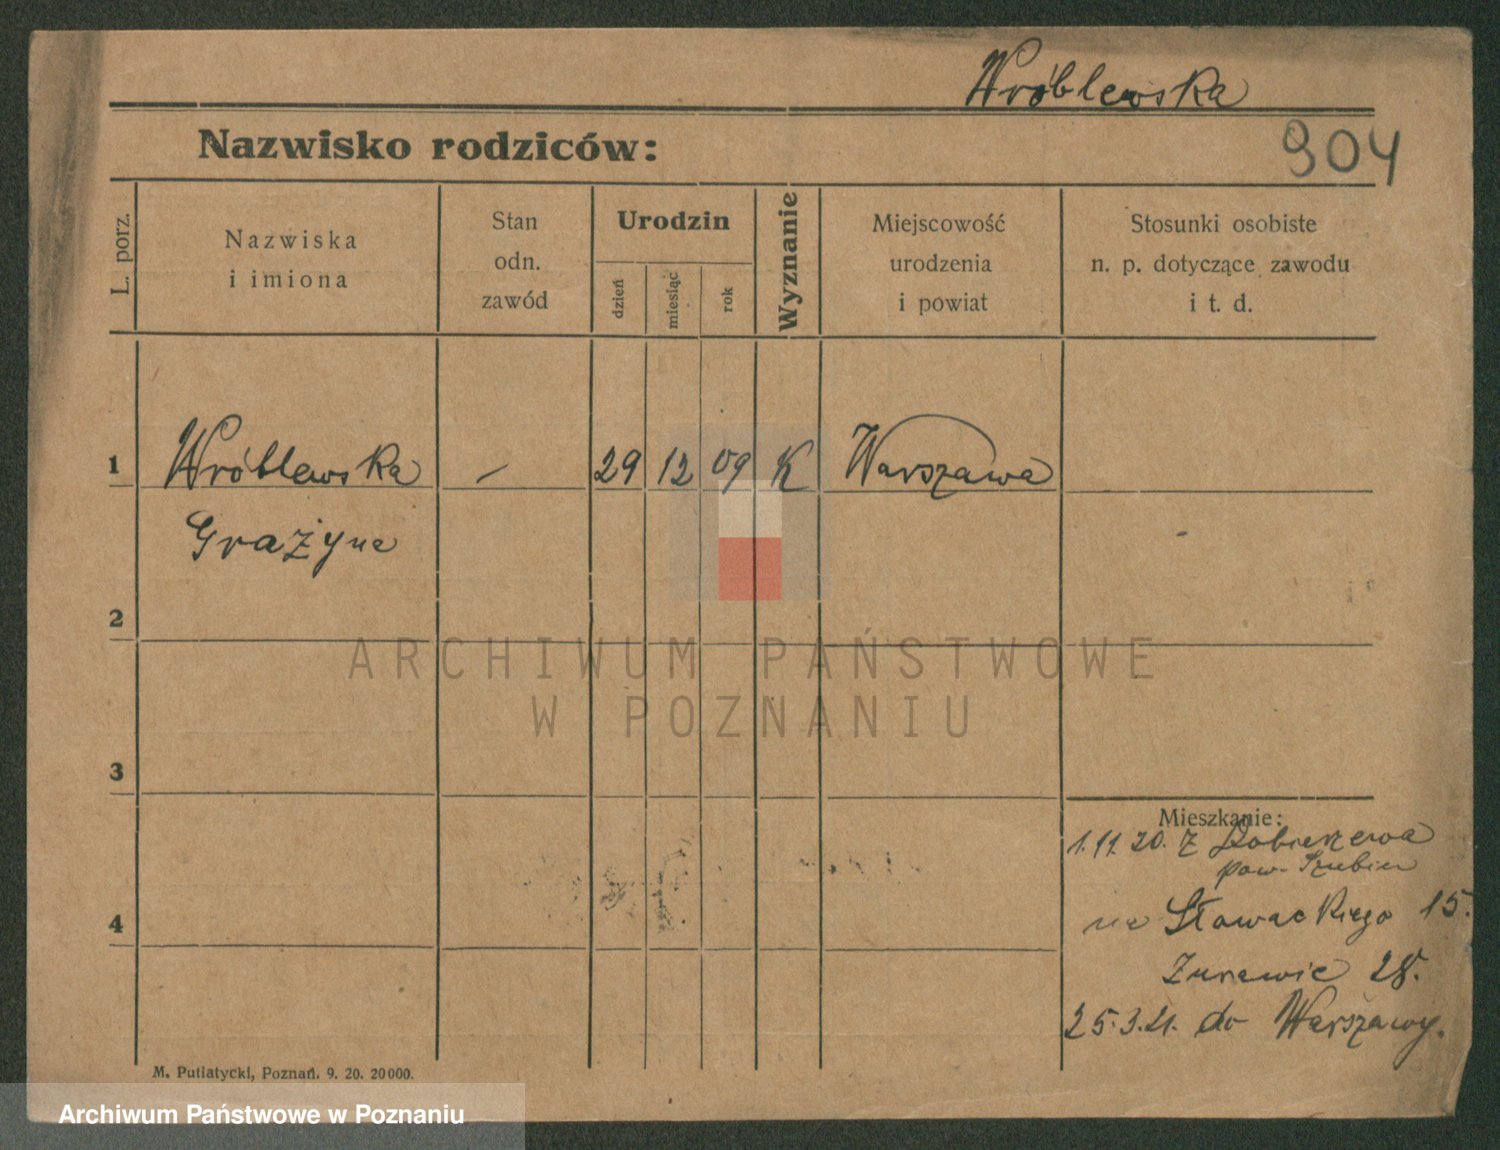 Wróblewska
Nazwisko rodziców:
904
L. porz.
Nazwiska
i imiona
Stan
odn.
zawód
Urodzin
dzień
miesiąc
rok
Wyznanie
Miejscowość
urodzenia
i powiat
Stosunki osobiste
n. p. dotyczące zawodu
i t. d.
1
Wróblewska
—
29
12
09
K
Warszawa
Grażyna
2
ARCHIWUM PAŃSTWOWE
W POZNANIU
3
Mieszkanie:
1.11.20. z
pow. Szubin
na Słowackiego 15.
4
28.
25.3.21. do Warszawy.
M. Putiatycki, Poznań. 9. 20. 20000.
Archiwum Państwowe w Poznaniu